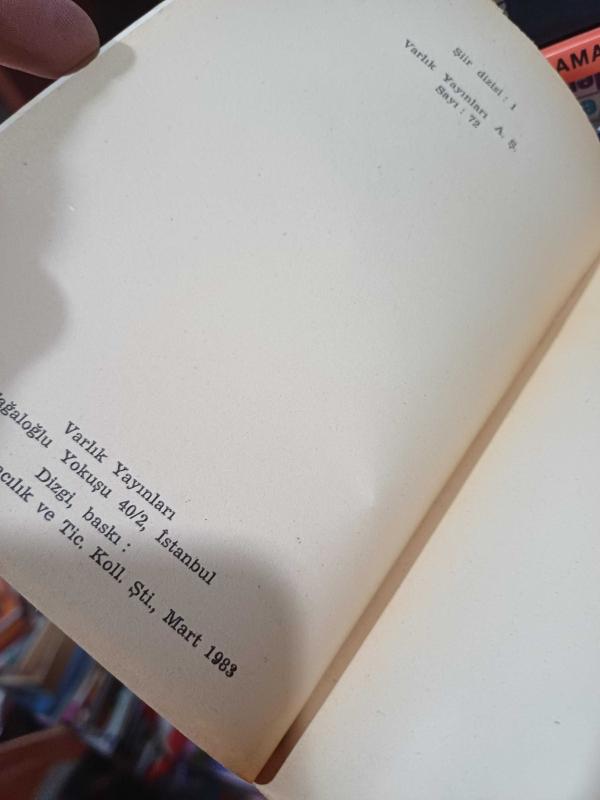 Şiir dizisi: 1
Varlık Yayınları A. Ş.
Sayı: 72
AMA
Varlık Yayınları
ağaloğlu Yokuşu 40/2, İstanbul
Dizgi, baskı:
cılık ve Tic. Koll. Şti., Mart 1983